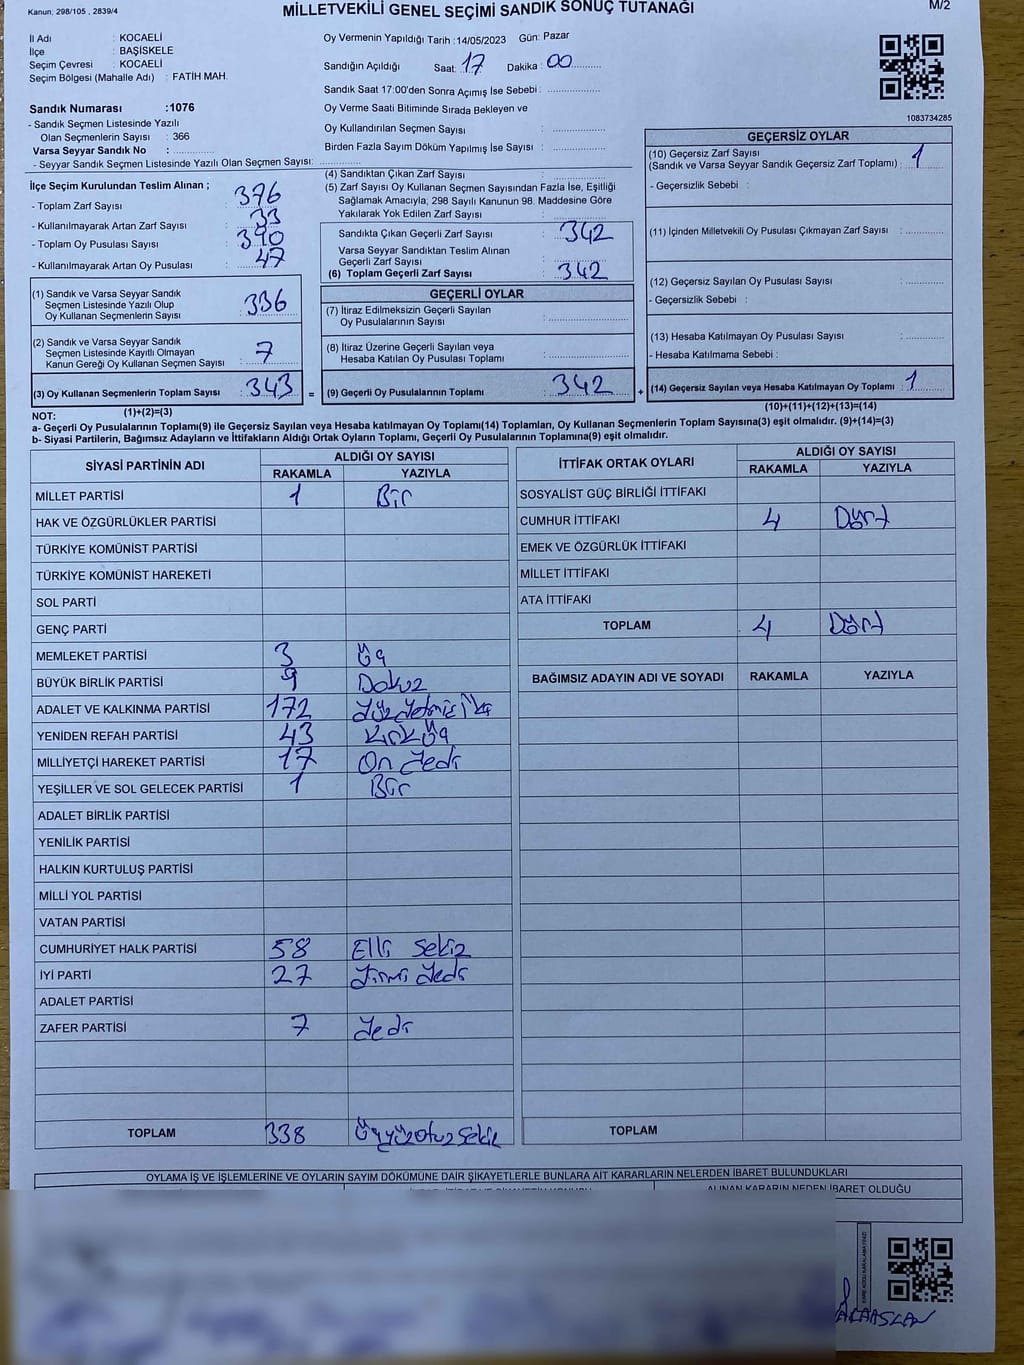 Kanun; 298/105 , 2839/4
MİLLETVEKİLİ GENEL SEÇİMİ SANDIK SONUÇ TUTANAĞI
M/2
İl Adı : KOCAELİ
İlçe : BAŞİSKELE
Seçim Çevresi : KOCAELİ
Seçim Bölgesi (Mahalle Adı) : FATİH MAH.
Sandık Numarası :1076
- Sandık Seçmen Listesinde Yazılı
Olan Seçmenlerin Sayısı : 366
Varsa Seyyar Sandık No :
- Seyyar Sandık Seçmen Listesinde Yazılı Olan Seçmen Sayısı:
Oy Vermenin Yapıldığı Tarih :14/05/2023 Gün: Pazar
Sandığın Açıldığı Saat: 17 Dakika : 00
Sandık Saat 17:00'den Sonra Açımış İse Sebebi :
Oy Verme Saati Bitiminde Sırada Bekleyen ve
Oy Kullandırılan Seçmen Sayısı :
Birden Fazla Sayım Döküm Yapılmış İse Sayısı :
1083734285
İlçe Seçim Kurulundan Teslim Alınan ;
- Toplam Zarf Sayısı : 376
- Kullanılmayarak Artan Zarf Sayısı : 33
- Toplam Oy Pusulası Sayısı : 390
- Kullanılmayarak Artan Oy Pusulası : 47
(1) Sandık ve Varsa Seyyar Sandık
Seçmen Listesinde Yazılı Olup
Oy Kullanan Seçmenlerin Sayısı : 336
(2) Sandık ve Varsa Seyyar Sandık
Seçmen Listesinde Kayıtlı Olmayan
Kanun Gereği Oy Kullanan Seçmen Sayısı : 7
(3) Oy Kullanan Seçmenlerin Toplam Sayısı : 343 =
(1)+(2)=(3)
(4) Sandıktan Çıkan Zarf Sayısı :
(5) Zarf Sayısı Oy Kullanan Seçmen Sayısından Fazla İse, Eşitliği
Sağlamak Amacıyla; 298 Sayılı Kanunun 98. Maddesine Göre
Yakılarak Yok Edilen Zarf Sayısı :
Sandıkta Çıkan Geçerli Zarf Sayısı : 342
Varsa Seyyar Sandıktan Teslim Alınan
Geçerli Zarf Sayısı :
(6) Toplam Geçerli Zarf Sayısı : 342
GEÇERLİ OYLAR
(7) İtiraz Edilmeksizin Geçerli Sayılan
Oy Pusulalarının Sayısı :
(8) İtiraz Üzerine Geçerli Sayılan veya
Hesaba Katılan Oy Pusulası Toplamı :
(9) Geçerli Oy Pusulalarının Toplamı : 342 +
GEÇERSİZ OYLAR
(10) Geçersiz Zarf Sayısı
(Sandık ve Varsa Seyyar Sandık Geçersiz Zarf Toplamı) : 1
- Geçersizlik Sebebi :
(11) İçinden Milletvekili Oy Pusulası Çıkmayan Zarf Sayısı :
(12) Geçersiz Sayılan Oy Pusulası Sayısı :
- Geçersizlik Sebebi :
(13) Hesaba Katılmayan Oy Pusulası Sayısı :
- Hesaba Katılmama Sebebi :
(14) Geçersiz Sayılan veya Hesaba Katılmayan Oy Toplamı : 1
(10)+(11)+(12)+(13)=(14)
NOT:
a- Geçerli Oy Pusulalarının Toplamı(9) ile Geçersiz Sayılan veya Hesaba katılmayan Oy Toplamı(14) Toplamları, Oy Kullanan Seçmenlerin Toplam Sayısına(3) eşit olmalıdır. (9)+(14)=(3)
b- Siyasi Partilerin, Bağımsız Adayların ve İttifakların Aldığı Ortak Oyların Toplamı, Geçerli Oy Pusulalarının Toplamına(9) eşit olmalıdır.
SİYASİ PARTİNİN ADI
ALDIĞI OY SAYISI
RAKAMLA YAZIYLA
MİLLET PARTİSİ 1 Bir
HAK VE ÖZGÜRLÜKLER PARTİSİ
TÜRKİYE KOMÜNİST PARTİSİ
TÜRKİYE KOMÜNİST HAREKETİ
SOL PARTİ
GENÇ PARTİ
MEMLEKET PARTİSİ 3 Üç
BÜYÜK BİRLİK PARTİSİ 9 Dokuz
ADALET VE KALKINMA PARTİSİ 172 Yüzyetmiş iki
YENİDEN REFAH PARTİSİ 43 Kırküç
MİLLİYETÇİ HAREKET PARTİSİ 17 On Yedi
YEŞİLLER VE SOL GELECEK PARTİSİ 1 Bir
ADALET BİRLİK PARTİSİ
YENİLİK PARTİSİ
HALKIN KURTULUŞ PARTİSİ
MİLLİ YOL PARTİSİ
VATAN PARTİSİ
CUMHURİYET HALK PARTİSİ 58 Elli Sekiz
İYİ PARTİ 27 Yirmi Yedi
ADALET PARTİSİ
ZAFER PARTİSİ 7 Yedi
TOPLAM 338 Üçyüzotuz Sekiz
İTTİFAK ORTAK OYLARI
ALDIĞI OY SAYISI
RAKAMLA YAZIYLA
SOSYALİST GÜÇ BİRLİĞİ İTTİFAKI
CUMHUR İTTİFAKI 4 Dört
EMEK VE ÖZGÜRLÜK İTTİFAKI
MİLLET İTTİFAKI
ATA İTTİFAKI
TOPLAM 4 Dört
BAĞIMSIZ ADAYIN ADI VE SOYADI RAKAMLA YAZIYLA
TOPLAM
OYLAMA İŞ VE İŞLEMLERİNE VE OYLARIN SAYIM DÖKÜMÜNE DAİR ŞİKAYETLERLE BUNLARA AİT KARARLARIN NELERDEN İBARET BULUNDUKLARI
ALINAN KARARIN NEDEN İBARET OLDUĞU